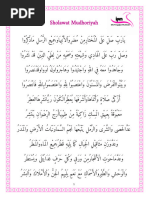 Sholawat Mudhoriyah
يَارَبِّ صَلِّ عَلَى الْمُخْتَارِمِنْ مُضَرٍ وَالْأَنْبِيَاوَجَمِيْعِ الرُّسْلِ مَاذُكِرُوْا
وَصَلِّ رَبِّ عَلَى الْهَادِيْ وَشِيْعَتِهِ وَصَحْبِهِ مَنْ لِطَيِّ الدِّيْنِ قَدْ نَشَرُوْا
وَجَاهَدُوْا مَعَهُ فِي اللهِ وَاجْتَهَدُوْا وَهَاجَرُوْا وَلَهُ آوَوْا وَقَدْ نَصَرُوْا
وَبَيَّنُوا الْفَرْضَ وَالْمَسْنُوْنَ وَاعْتَصَبُوْا لِلّهِ وَاعْتَصَمُوْا بِاللهِ فَانْتَصَرُوْا
أَزْكَى صَلَاةٍ وَأَنْمَاهَا وَأَشْرَفَهَا يُعَطِّرُ الْكَوْنَ رَيًّا نَشْرِهَا الْعَطِرُ
مَعْبُوْقَةً بِعَبِيْقِ الْمِسْكِ زَاكِيَةً مِنْ طِيْبِهَا أَرَجُ الرِّضْوَانِ يَنْتَشِرُ
عَدَّ الْحَصَى وَالثَّرَى وَالرَّمْلِ يَتْبَعُهَا نَجْمُ السَّمَاوَنَبَاتُ الْأَرْضِ وَالْمَدَرُ
وَعَدَّ مَا حَوَتِ الْأَشْجَارُ مِنْ وَرَقٍ وَكُلِّ حَرْفٍ غَدَا يُتْلَى وَيُسْتَطَرُ
وَالْوَحْشِ وَالطَّيْرِ وَالْأَسْمَاكِ مَعْ نَعَمٍ يَلِيْهِمُ الْجِنُّ وَالْأَمْلَاكُ وَالْبَشَرُ